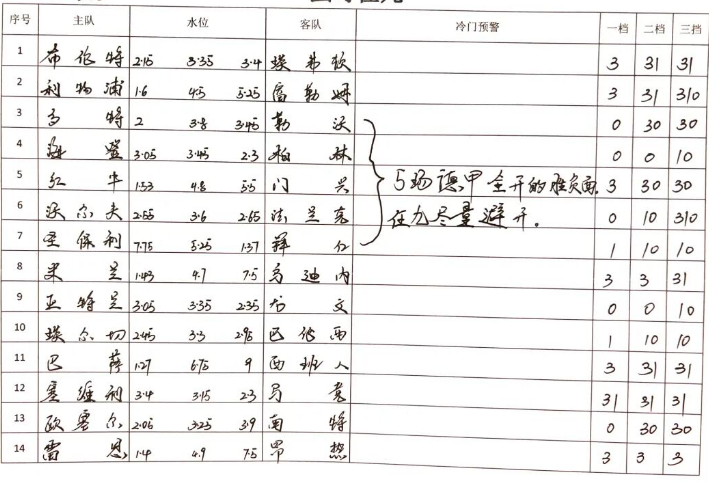 序号 主队 水位 客队 冷门预警 一档 二档 三档
1 布伦特 2.15 3.35 3.4 埃弗顿 3 31 31
2 利物浦 1.6 4.5 5.25 富勒姆 3 31 310
3 多特 2 3.8 3.45 勒沃 0 30 30
4 海登 3.05 3.45 2.3 柏林 0 0 10
5 红牛 1.53 4.8 5.5 门兴 5场德甲全开的难负面. 3 30 30
6 沃尔夫 2.55 3.6 2.65 法兰克 任九尽量避开. 0 10 310
7 圣保利 7.75 5.25 1.37 拜仁 1 10 10
8 米兰 1.43 4.7 7.5 乌迪内 3 3 31
9 亚特兰 3.05 3.35 2.35 尤文 0 0 10
10 埃尔切 2.45 3.3 2.95 巴伦西 1 10 10
11 巴萨 1.27 6.75 9 西班人 3 31 31
12 塞维利 3.4 3.15 2.3 马竞 31 31 31
13 欧塞尔 2.05 3.25 3.9 南特 0 30 30
14 雷恩 1.4 4.9 7.5 昂热 3 3 3